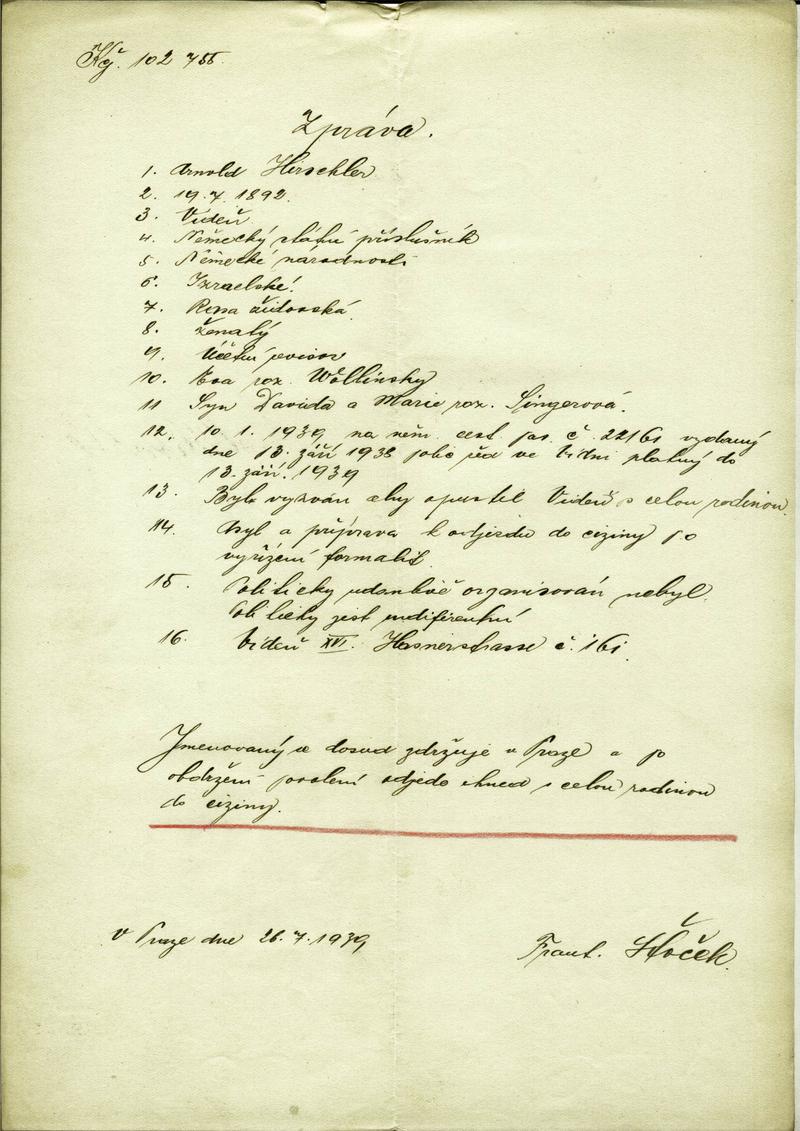 102 755.
Zpráva.
1. Arnold Hirschler
2. 19.7.1892.
3. Vídeň
4. Německý státní příslušník
5. Německé národnosti
6. Izraelské.
7. Rasa židovská.
8. ženatý
9. Účetní revisor
10. Eva roz. Wollinsky
11 Syn Davida a Marie roz. Singerová.
12. 10. 1. 1939 na něm. cest pas. č. 22161 vydaný
dne 13. září 1938 ve Vídni platný do
13. září. 1939
13. Byl vyzván aby opustil Vídeň s celou rodinou.
14. Byl a příprava k odjezdu do ciziny po
vyřízení formalit.
15. Politicky organisován nebyl.
Politicky jest indiferentní
16. Vídeň XVI. Hasnerstrasse č. 161.
Jmenovaný se dosud zdržuje v Praze a po
obdržení povolení odjede ihned s celou rodinou
do ciziny.
V Praze dne 26.7.1939
Frant.